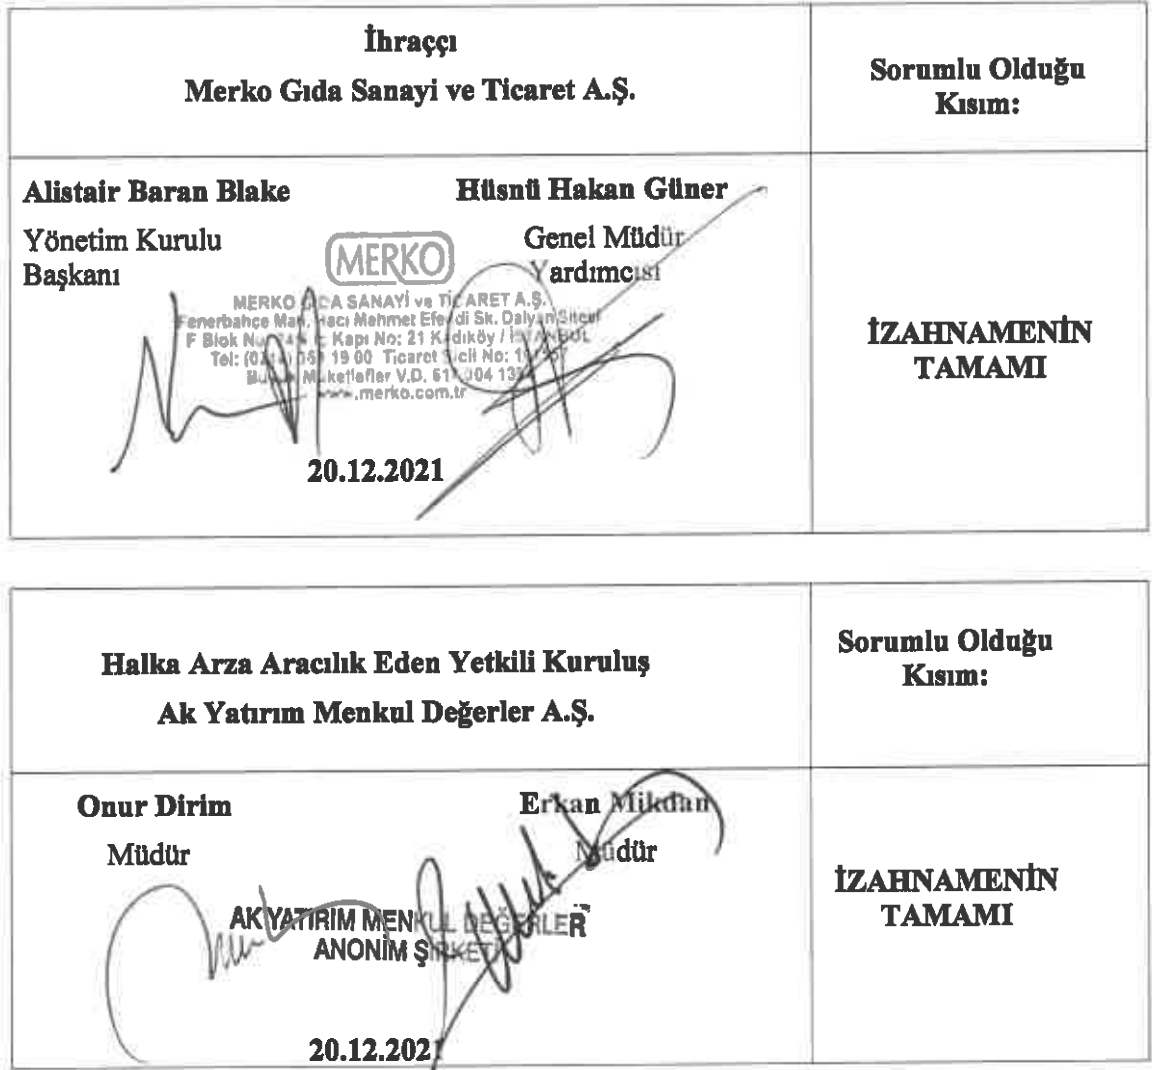 İhraççı
Merko Gıda Sanayi ve Ticaret A.Ş.
Sorumlu Olduğu
Kısım:
Alistair Baran Blake
Hüsnü Hakan Güner
Yönetim Kurulu
Başkanı
Genel Müdür
Yardımcısı
MERKO
MERKO GIDA SANAYİ ve TİCARET A.Ş.
Fenerbahçe Mah. Hacı Mehmet Efendi Sk. Dalyan Sitesi
F Blok Kapı No: 21 Kadıköy / İSTANBUL
Tel: 19 00 Ticaret Sicil No:
Mükellefler V.D.
www.merko.com.tr
20.12.2021
İZAHNAMENİN
TAMAMI
Halka Arza Aracılık Eden Yetkili Kuruluş
Ak Yatırım Menkul Değerler A.Ş.
Sorumlu Olduğu
Kısım:
Onur Dirim
Erkan Mikdan
Müdür
Müdür
AK YATIRIM MENKUL DEĞERLER
ANONİM ŞİRKETİ
20.12.2021
İZAHNAMENİN
TAMAMI